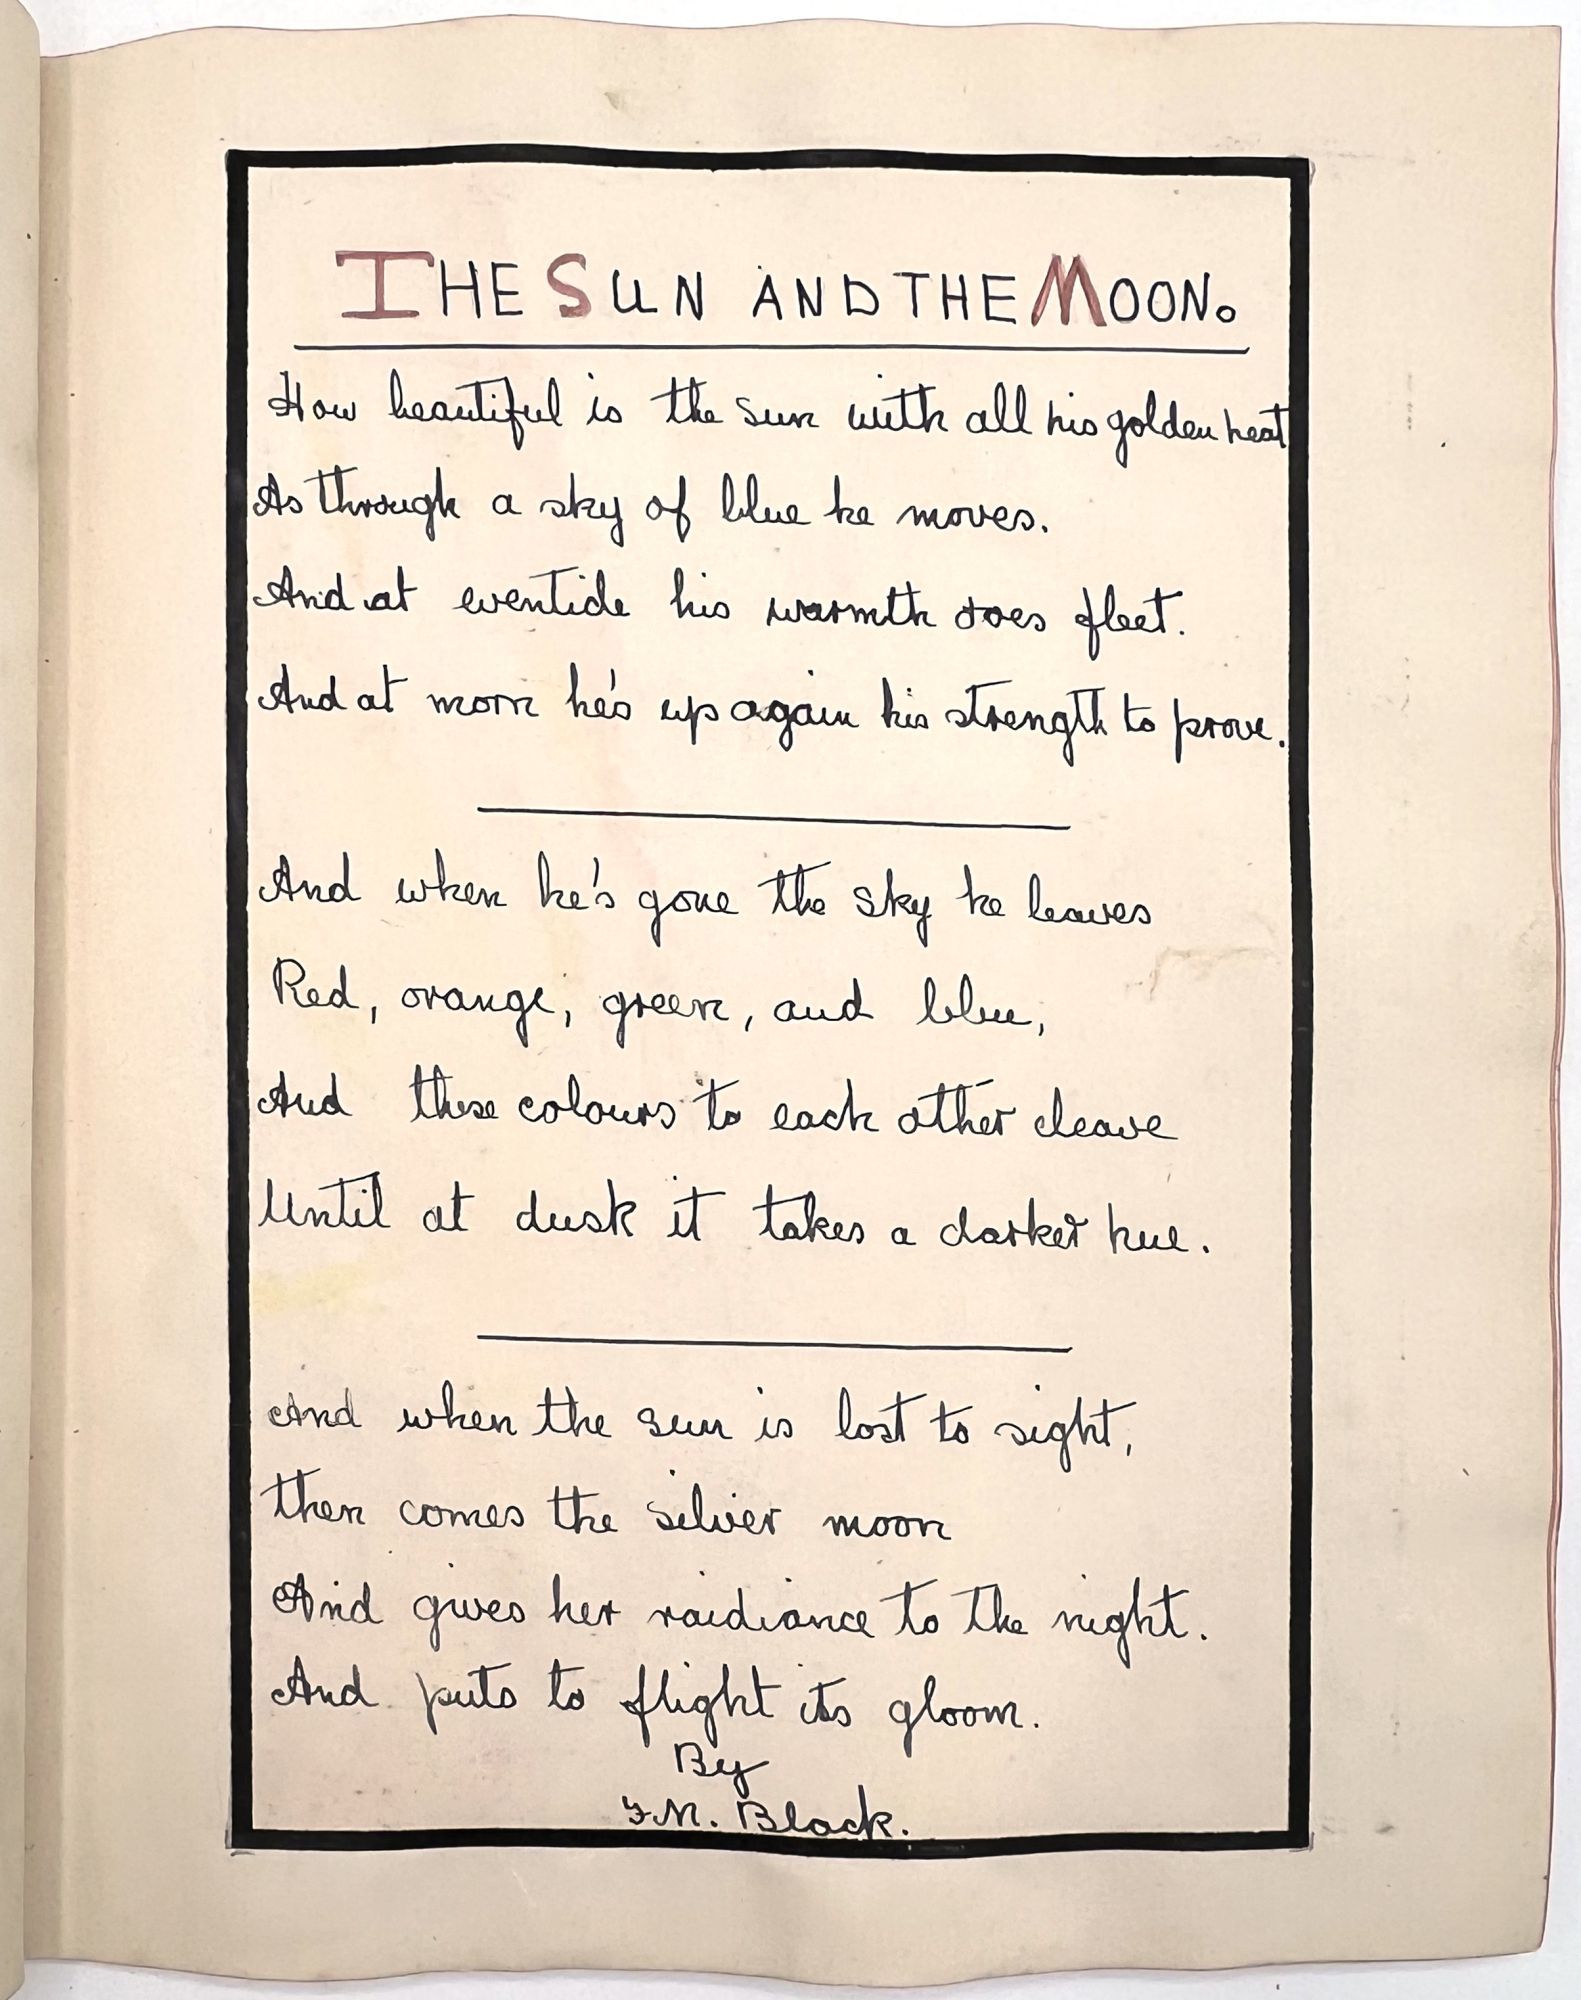 THE SUN AND THE MOON.
How beautiful is the sun with all his golden heat
As through a sky of blue he moves.
And at eventide his warmth does fleet.
And at morn he's up again his strength to prove.
And when he's gone the sky he leaves
Red, orange, green, and blue,
And these colours to each other cleave
Until at dusk it takes a darker hue.
And when the sun is lost to sight,
then comes the silver moon
And gives her raidiance to the night.
And puts to flight its gloom.
By
F.M. Black.